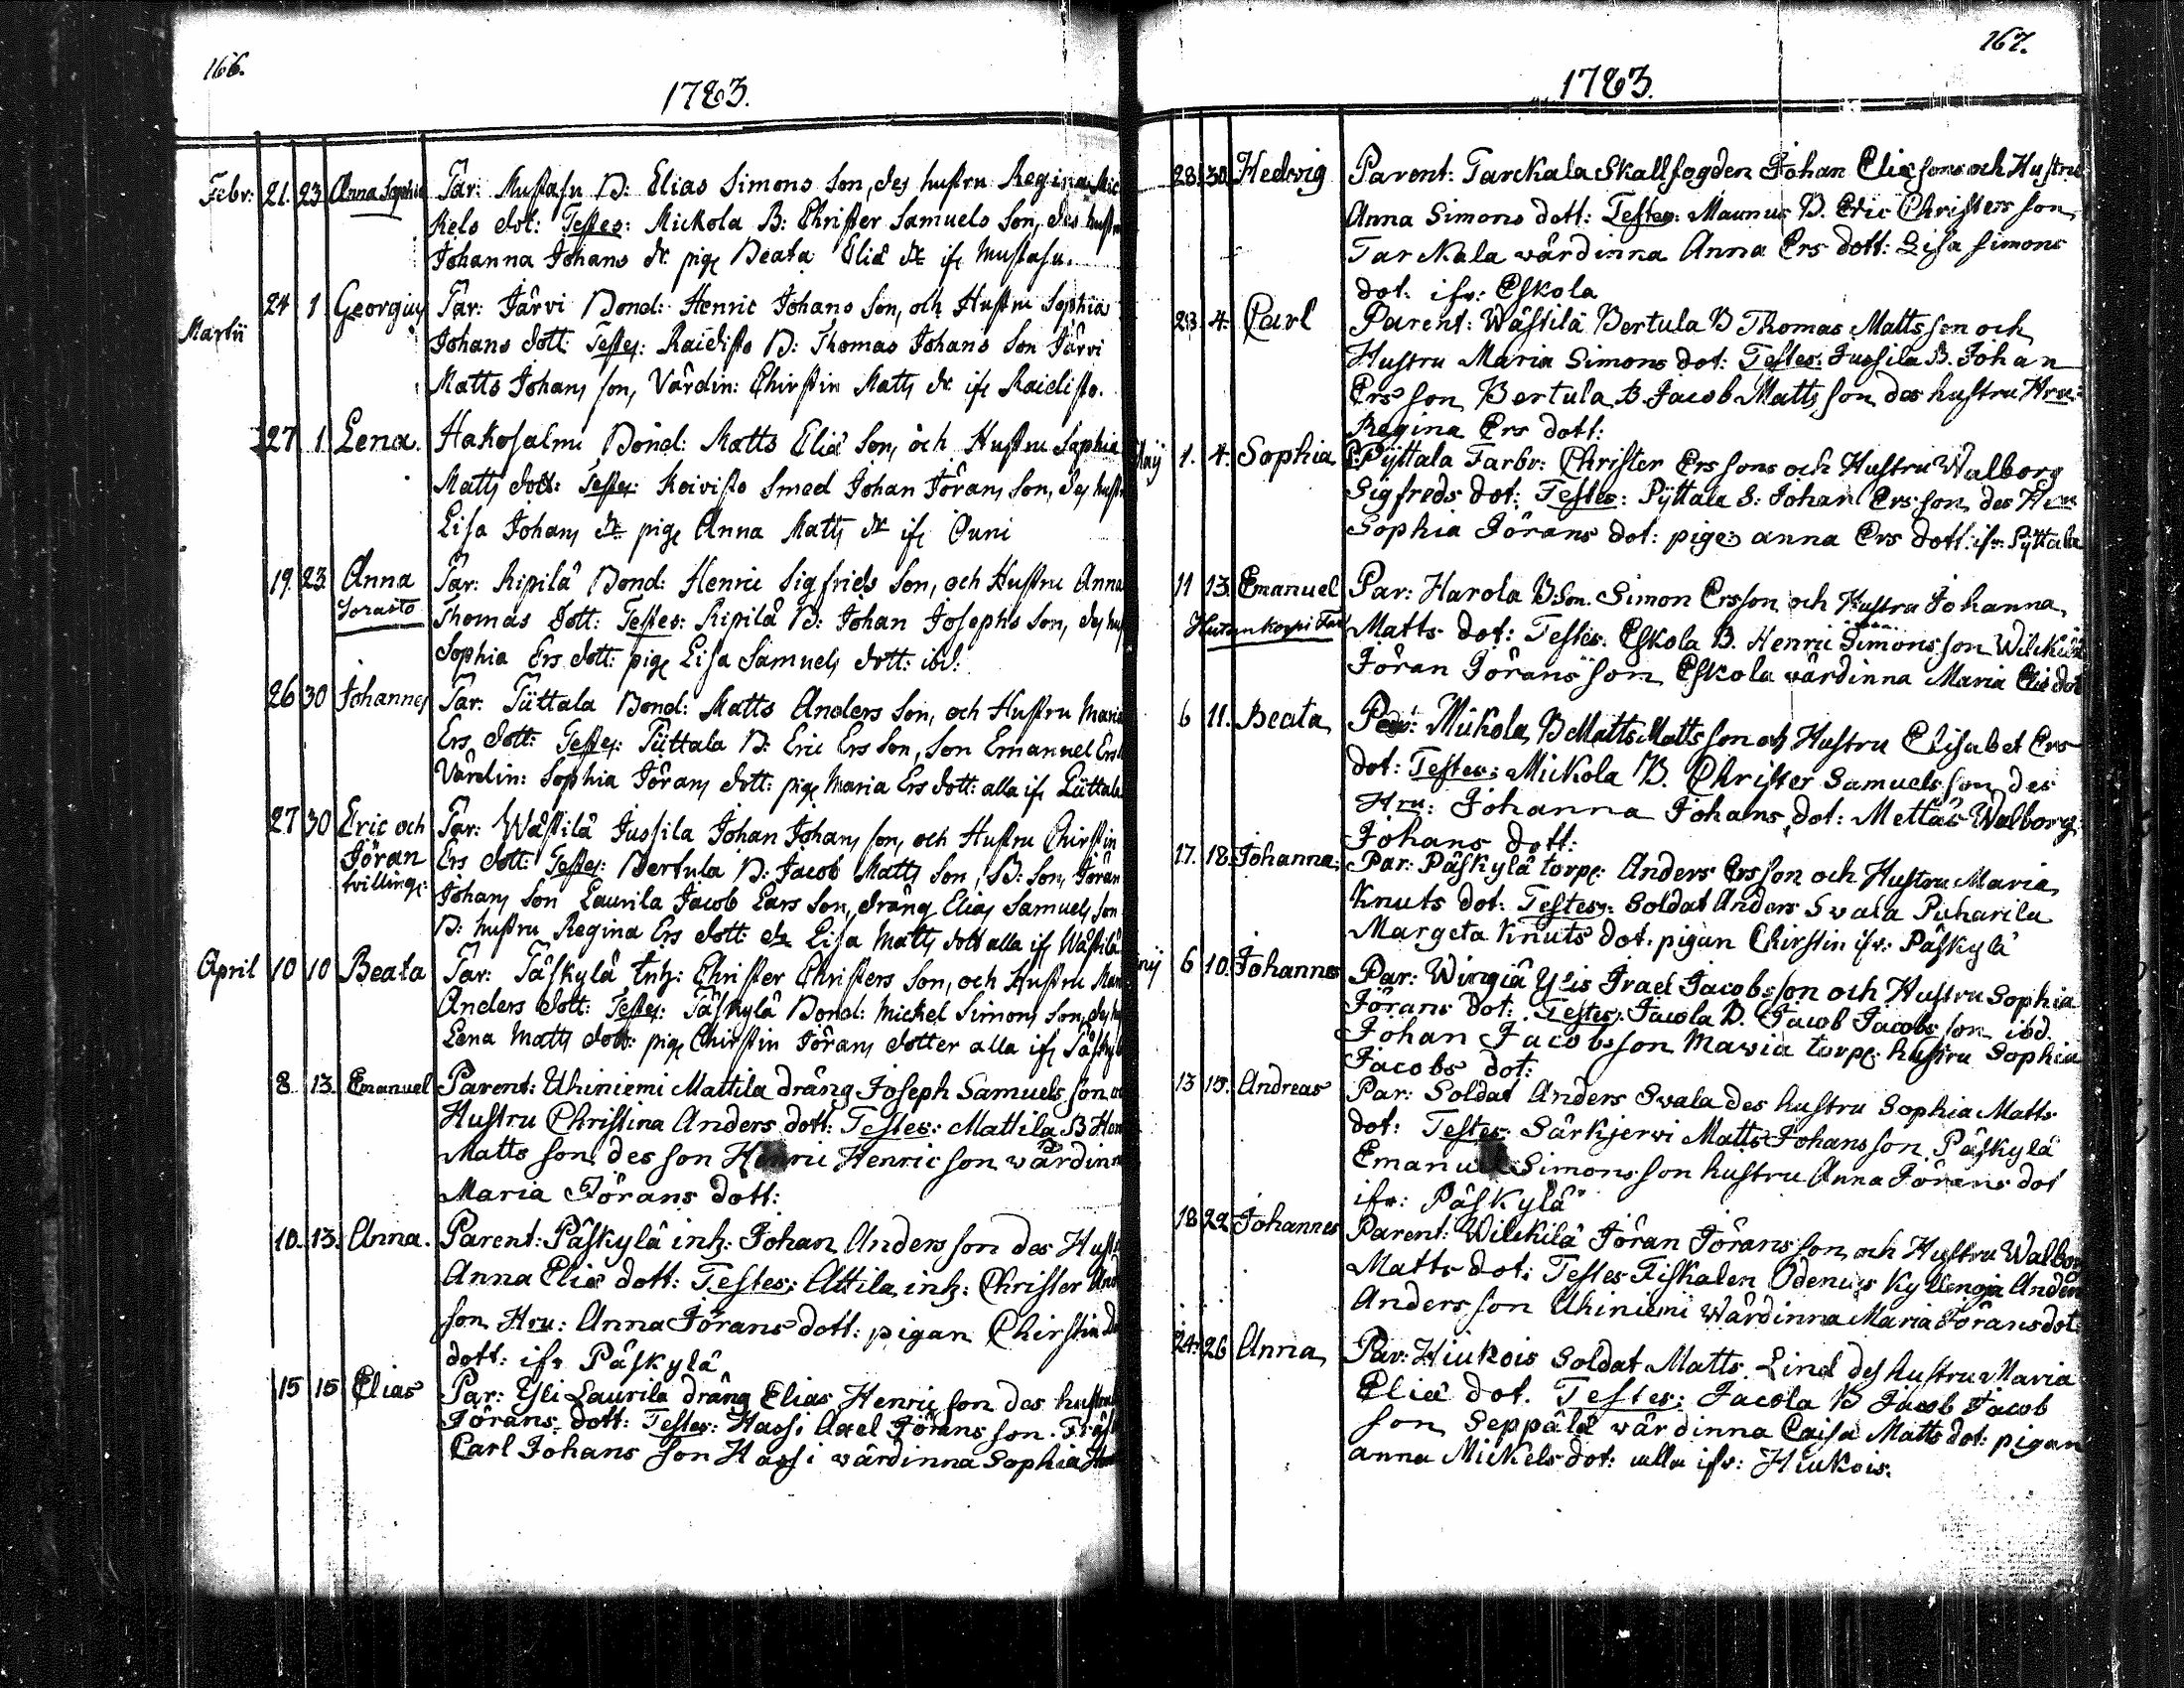 166.
1783.
Febr: 21. 23 Anna Sophia Par: Mustasu B: Elias Simons Son, des hustru Regina Mic
kels dot: Testes: Mickola B: Christer Samuels Son, des
Johanna Johans dr pige Beata Eliæ dr ifr Mustasu.
24 1 Georgius Par: Järvi Bond: Henric Johans Son, och Hustru Sophia
Martii Johans dott: Testes: Raidisto B: Thomas Johans Son Järvi
Matts Johans son, Värdin: Chirstin Matts dr ifr Raidisto.
27 1 Lena. Hakosalmi Bond: Matts Eliæ Son, och Hustru Sophia
Matts dott: Testes: Koivisto Smed Johan Jörans Son, des
Lisa Johans dr pige Anna Matts dr ifr Ouni
19. 23 Anna Par: Ripilä Bond: Henric Sigfrids Son, och Hustru Anna
Sorasto Thomas dott: Testes: Ripilä B: Johan Josephs Son, des
Sophia Ers dott: pige Lisa Samuels dott: ibd:
26 30 Johannes Par: Püttala Bond: Matts Anders Son, och Hustru Maria
Ers dott: Testes: Püttala B: Eric Ers Son, Son Emanuel Ers
Värdin: Sophia Jörans dott: pige Maria Ers dott: alla ifr Püttala
27 30 Eric och Par: Wästilä Jussila Johan Johans son, och Hustru Chirstin
Jöran Ers dott: Testes: Bertula B: Jacob Matts Son, B: Son, Jöran
tvillingr: Johans Son Laurila Jacob Lars Son, dräng Elias Samuels Son
B: hustru Regina Ers dott: Lisa Matts dott alla ifr Wästilä
April 10 10 Beata Par: Päskylä Inh: Christer Christers Son, och Hustru
Anders dott: Testes: Päskylä Bond: Mickel Simons Son, des
Lena Matts dott: pige Chirstin Jörans dotter alla ifr
8 13. Emanuel Parent: Uhiniemi Mattila dräng Joseph Samuels son
Hustru Christina Anders dott: Testes: Mattila B
Matts son des son Henric Henric son wärdinn
Maria Jörans dott:
10. 13. Anna. Parent: Päskylä inh: Johan Anders son des
Anna Eliæ dott: Testes: Attila inh: Christer
son Hru: Anna Jörans dott: pigan Chirstin
dott: ifr Päskylä
15 15 Elias Par: Yli Laurila dräng Elias Henric son des
Jörans dott: Testes: Hassi Axel Jörans son.
Carl Johans Son Hassi wärdinna Sophia
167.
1783.
28. 30. Hedvig Parent: Tarckala Skallfogden Johan Eliæ sons och Hustru
Anna Simons dott: Testes: Maunus B. Eric Christers son
Tarckala wärdinna Anna Ers dott: Lisa Simons
dot: ifr: Eskola
28. 4. Carl Parent: Wästilä Bertula B Thomas Matts son och
Hustru Maria Simons dot: Testes: Jussila B. Johan
Ers son Bertula B. Jacob Matts son des hustru Hru:
Regina Ers dott:
1. 4. Sophia P: Pÿttala Farbr: Christer Ers sons och Hustru Walborg
Sigfreds dot: Testes: Pÿttala S: Johan Ers son des
Sophia Jörans dot: pige: anna Ers dott: ifr: Pÿttala
11 13. Emanuel Par: Harola B:son. Simon Ersson och Hustru Johanna
Matts dot: Testes: Eskola B. Henric Simons son
Jöran Jörans son Eskola wärdinna Maria Eliæ dot
6 11. Beata Mickola B Matts Matts son och Hustru Elisabet Ers
dot: Testes: Mickola B. Christer Samuels son des
Hru: Johanna Johans dot: Mettäs Walborg
Johans dott:
17. 18. Johanna: Par: Päskylä torpe: Anders Ersson och Hustru Maria
Knuts dot: Testes: Soldat Anders Svala Puharila
Margeta Knuts dot: pigan Chirstin ifr: Päskylä
6 10. Johannes Par: Wirgiä Ylis Israel Jacobs son och Hustru Sophia
Jörans dot: Testes: Jacola B. Jacob Jacobs son ibd.
Johan Jacobsson Mavia torpe: hustru Sophia
Jacobs dot:
13 15. Andreas Par: Soldat Anders Svala des hustru Sophia Matts
dot: Testes: Särkjervi Matts Johans son Päskylä
Emanuel Simons son hustru Anna Jörans dot
ifr: Päskylä
18 22 Johannes Parent: Wilckilä Jöran Jörans son och Hustru Walbor
Matts dot: Testes Fiskalen Odenius Kyllenoja
Anders son Uhiniemi wärdinna Maria Jörans dot
24. 26 Anna Par: Hiukois Soldat Matts Lind des hustru Maria
Eliæ dot. Testes: Jacola B Jacob Jacob
son Seppälä wärdinna Caisa Matts dot: pigan
anna Mickels dot: alla ifr: Hiukois.